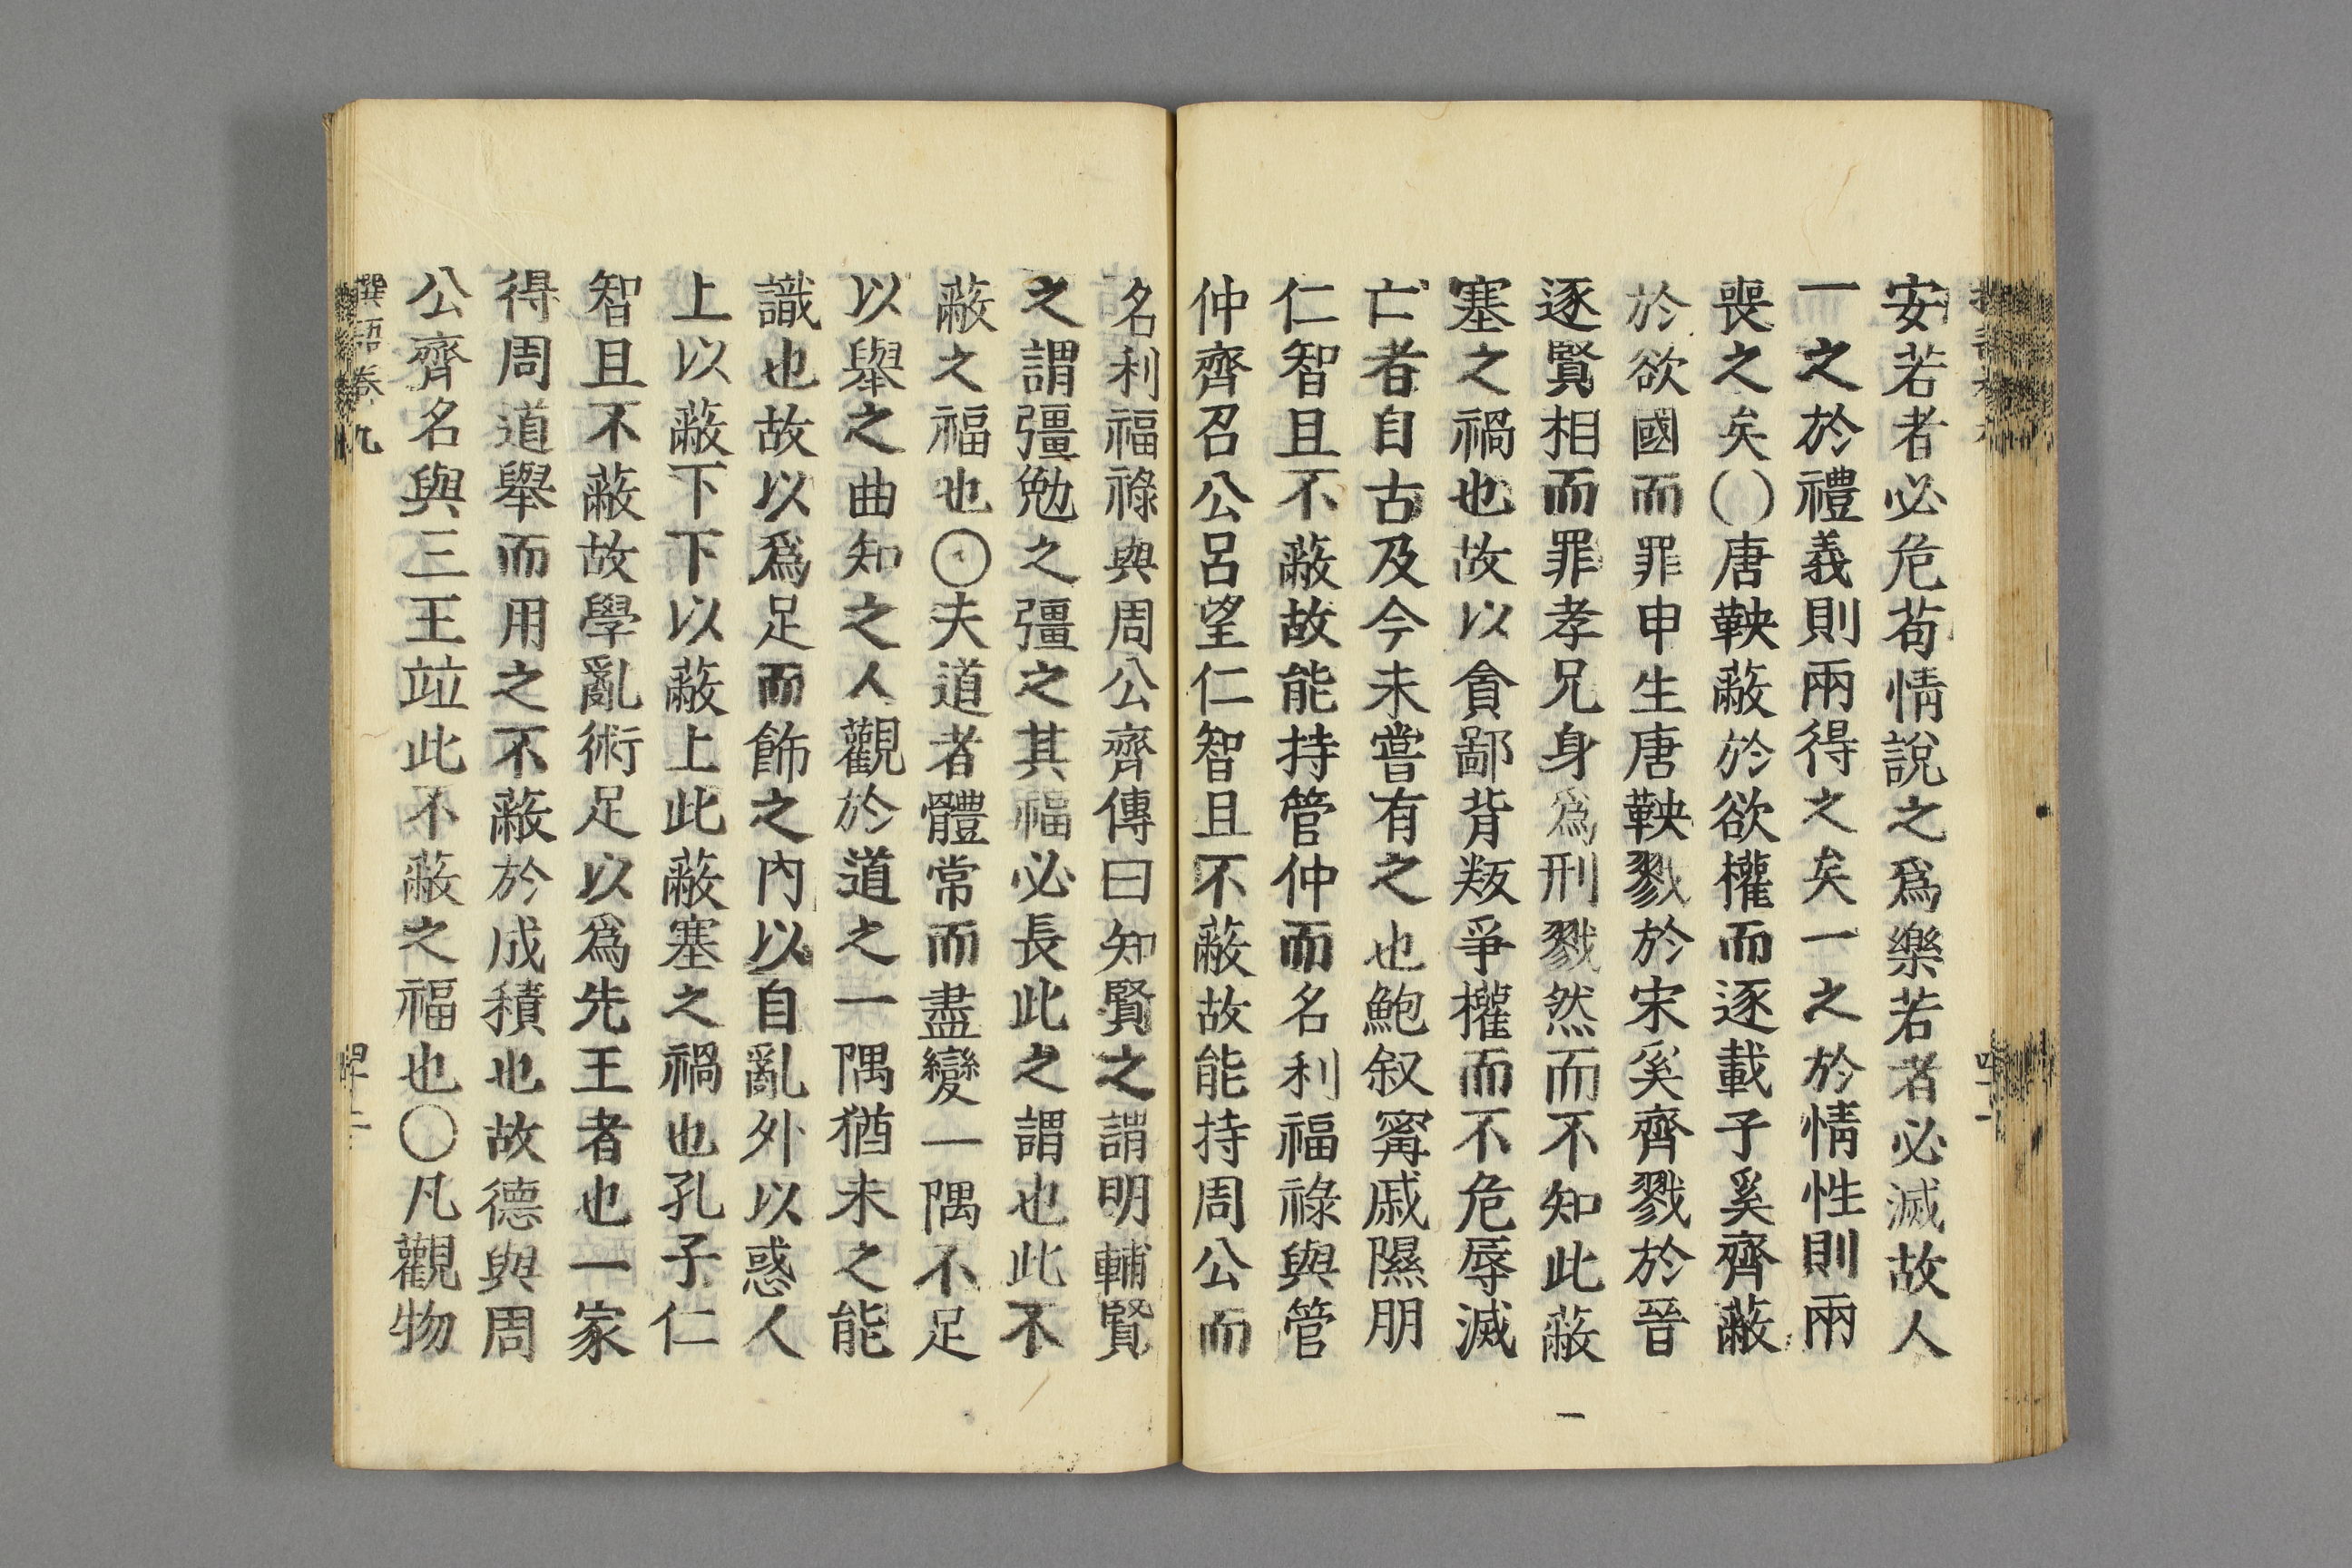 安若者必危苟情說之爲樂若者必滅故人
一之於禮義則兩得之矣一之於情性則兩
喪之矣○唐鞅蔽於欲權而逐載子奚齊蔽
於欲國而罪申生唐鞅戮於宋奚齊戮於晉
逐賢相而罪孝兄身爲刑戮然而不知此蔽
塞之禍也故以貪鄙背叛爭權而不危辱滅
亡者自古及今未嘗有之也鮑叙寗戚隰朋
仁智且不蔽故能持管仲而名利福祿與管
仲齊召公呂望仁智且不蔽故能持周公而
名利福祿與周公齊傳曰知賢之謂明輔賢
之謂彊勉之彊之其福必長此之謂也此不
蔽之福也○夫道者體常而盡變一隅不足
以舉之曲知之人觀於道之一隅猶未之能
識也故以爲足而飾之內以自亂外以惑人
上以蔽下下以蔽上此蔽塞之禍也孔子仁
智且不蔽故學亂術足以爲先王者也一家
得周道舉而用之不蔽於成積也故德與周
公齊名與三王竝此不蔽之福也○凡觀物
撰語卷九